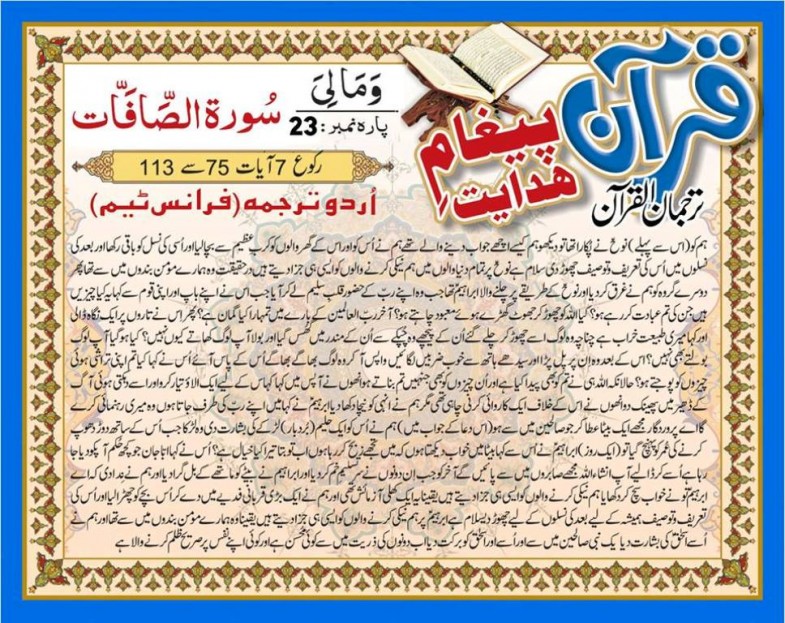 قرآن
پیغامِ
ہدایت
ترجمان القرآن
وَمَا لِیَ
پارہ نمبر: 23
سُورۃ الصّافّات
رکوع 7 آیات 75 سے 113
اُردو ترجمہ (فرانس ٹیم)
ہم کو (اس سے پہلے) نوحؑ نے پکارا تھا تو دیکھو ہم کیسے اچھے جواب دینے والے تھے ہم نے اُس کو اور اس کے گھر والوں کو کرب عظیم سے بچالیا اور اُسی کی نسل کو باقی رکھا اور بعد کی
نسلوں میں اُس کی تعریف و توصیف چھوڑ دی سلام ہے نوحؑ پر تمام دنیا والوں میں ہم نیکی کرنے والوں کو ایسی ہی جزا دیتے ہیں درحقیقت وہ ہمارے مؤمن بندوں میں سے تھا پھر
دوسرے گروہ کو ہم نے غرق کردیا اور نوحؑ کے طریقے پر چلنے والا ابراہیمؑ تھا جب وہ اپنے ربّ کے حضور قلب سلیم لے کر آیا جب اس نے اپنے باپ اور اپنی قوم سے کہا یہ کیا چیزیں
ہیں جن کی تم عبادت کررہے ہو؟ کیا اللہ کو چھوڑ کر جھوٹ گھڑے ہوئے معبود چاہتے ہو؟ آخر ربّ العالمین کے بارے میں تمہارا کیا گمان ہے؟ پھر اس نے تاروں پر ایک نگاہ ڈالی
اور کہا میری طبیعت خراب ہے چنانچہ وہ لوگ اسے چھوڑ کر چلے گئے اُن کے پیچھے وہ چپکے سے اُن کے مندر میں گھس گیا اور بولا آپ لوگ کھاتے کیوں نہیں؟ کیا ہوگیا آپ لوگ
بولتے بھی نہیں؟ اس کے بعد وہ ان پر پل پڑا اور سیدھے ہاتھ سے خوب ضربیں لگائیں واپس آکر وہ لوگ بھاگے بھاگے اُس کے پاس آئے اُس نے کہا کیا تم اپنی تراشی ہوئی
چیزوں کو پوجتے ہو؟ حالانکہ اللہ ہی نے تم کو بھی پیدا کیا ہے اور اُن چیزوں کو بھی جنہیں تم بناتے ہو انھوں نے آپس میں کہا کہ اس کے لیے ایک الاؤ تیار کرو اور اسے دہکتی ہوئی آگ
کے ڈھیر میں پھینک دو انھوں نے اس کے خلاف ایک کارروائی کرنی چاہی تھی مگر ہم نے انہی کو نیچا دکھا دیا ابراہیمؑ نے کہا میں اپنے ربّ کی طرف جاتا ہوں وہ میری رہنمائی کرے
گا اے پروردگار مجھے ایک بیٹا عطا کر جو صالحین میں سے ہو (اس دعا کے جواب میں) ہم نے اُس کو ایک حلیم (بردبار) لڑکے کی بشارت دی وہ لڑکا جب اُس کے ساتھ دوڑ دھوپ
کرنے کی عمر کو پہنچ گیا تو (ایک روز) ابراہیمؑ نے اس سے کہا بیٹا میں خواب دیکھتا ہوں کہ میں تجھے ذبح کر رہا ہوں اب تو بتا تیرا کیا خیال ہے؟ اُس نے کہا ابا جان جو کچھ حکم آپکو دیا جا
رہا ہے اُسے کرڈالیے آپ انشاءاللہ مجھے صابروں میں سے پائیں گے آخر کو جب ان دونوں نے سر تسلیم خم کر دیا اور ابراہیمؑ نے بیٹے کو ماتھے کے بل گرا دیا اور ہم نے ندا دی کہ اے
ابراہیمؑ تو نے خواب سچ کردکھایا ہم نیکی کرنے والوں کو ایسی ہی جزا دیتے ہیں یقیناً یہ ایک کھلی آزمائش تھی اور ہم نے ایک بڑی قربانی فدیے میں دے کر اُس بچے کو چھڑالیا اور اُس کی
تعریف و توصیف ہمیشہ کے لیے بعد کی نسلوں کے لیے چھوڑ دی سلام ہے ابراہیمؑ پر ہم نیکی کرنے والوں کو ایسی ہی جزا دیتے ہیں یقیناً وہ ہمارے مؤمن بندوں میں سے تھا اور ہم نے
اُسے اسحٰق کی بشارت دی ایک نبی صالحین میں سے اور اُسے اور اسحٰق کو برکت دی اب دونوں کی ذریت میں سے کوئی محسن ہے اور کوئی اپنے نفس پر صریح ظلم کرنے والا ہے